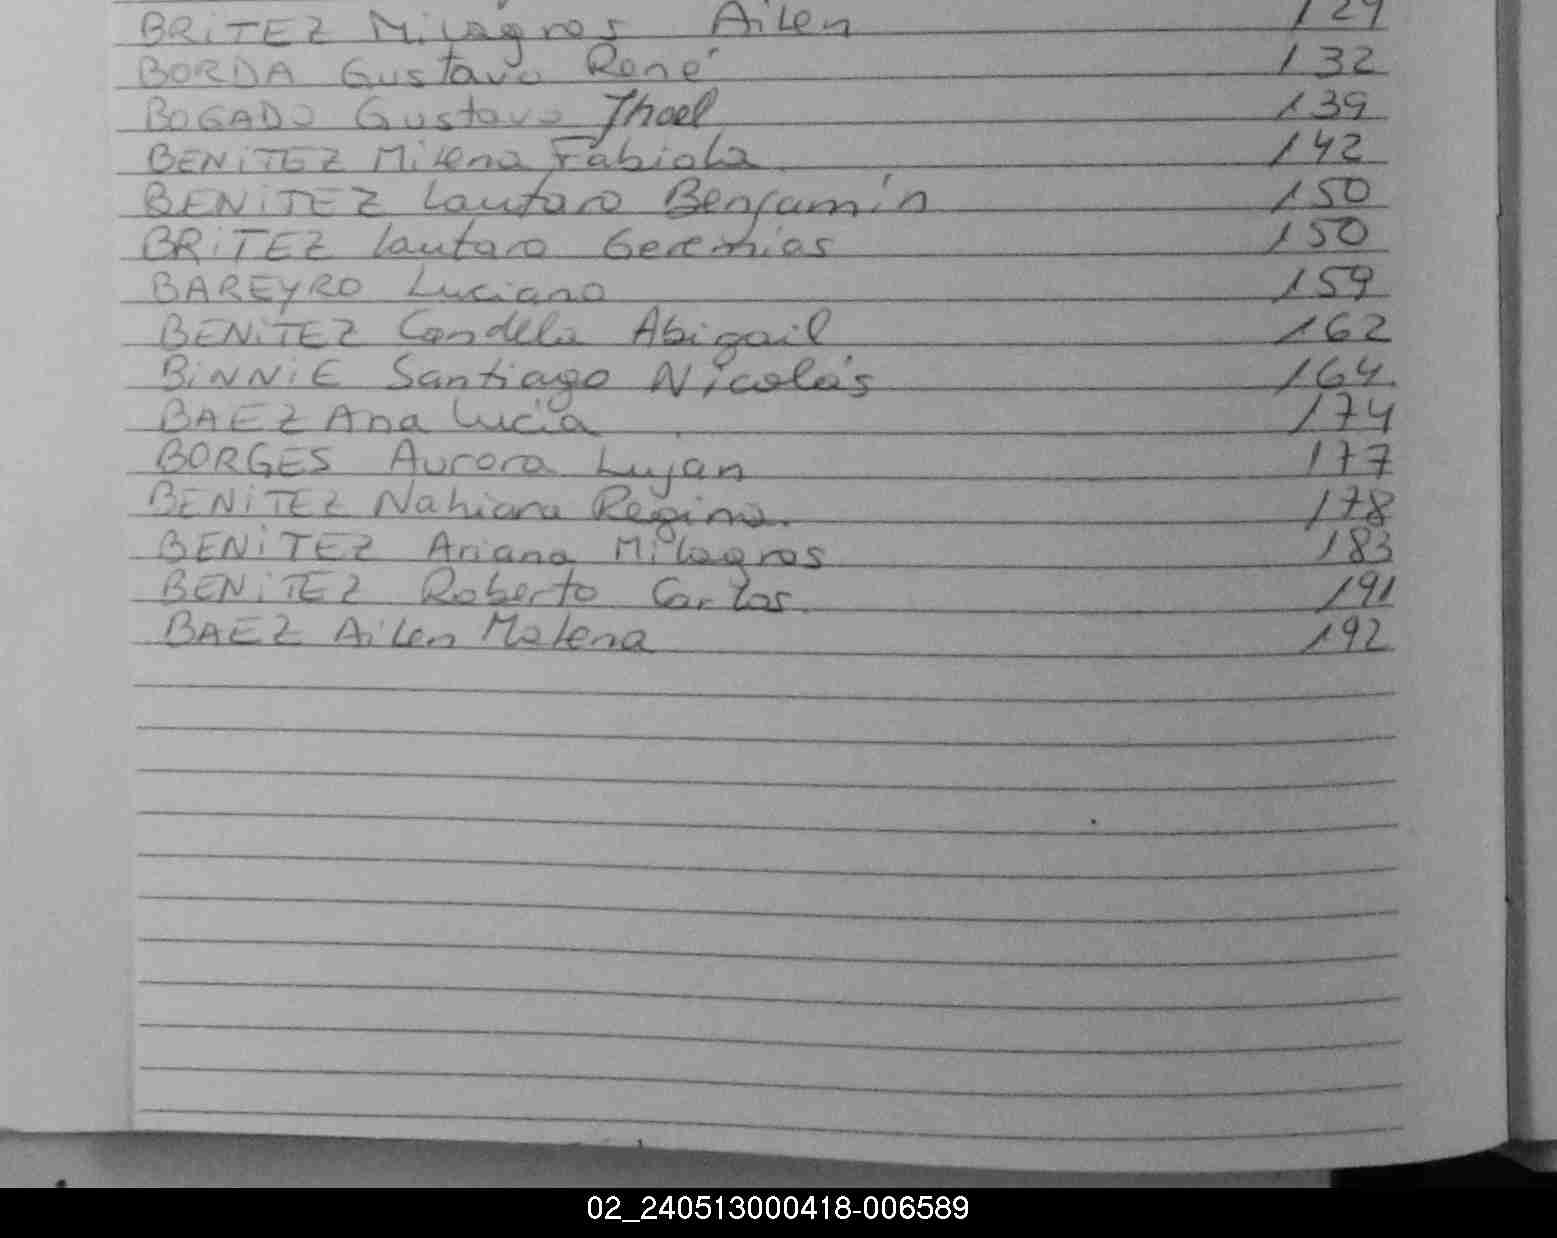 BRITEZ Milagros Ailen 129
BORDA Gustavo René 132
BOGADO Gustavo Jhoel 139
BENITEZ Milena Fabiola 142
BENITEZ Lautaro Benjamín 150
BRITEZ Lautaro Geremias 150
BAREYRO Luciano 159
BENITEZ Candela Abigail 162
BINNIE Santiago Nicolás 164
BAEZ Ana Lucía 174
BORGES Aurora Lujan 177
BENITEZ Nahiara Regina. 178
BENITEZ Ariana Milagros 183
BENITEZ Roberto Carlos. 191
BAEZ Ailen Malena 192
02_240513000418-006589